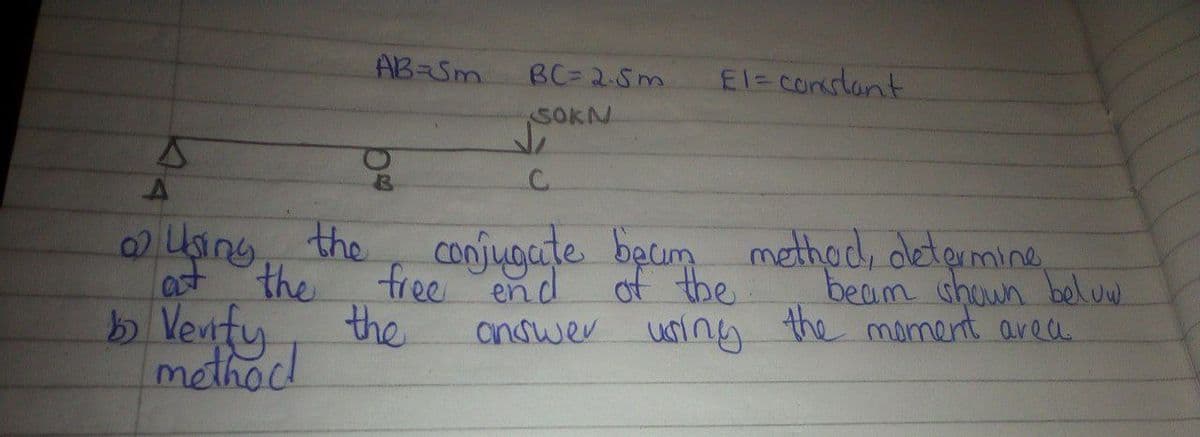 AB=5m BC=2.5m EI=constant
50KN
A B C
a) Using the conjugate beam method, determine
at the free end of the beam shown below
b) Verify the answer using the moment area
method